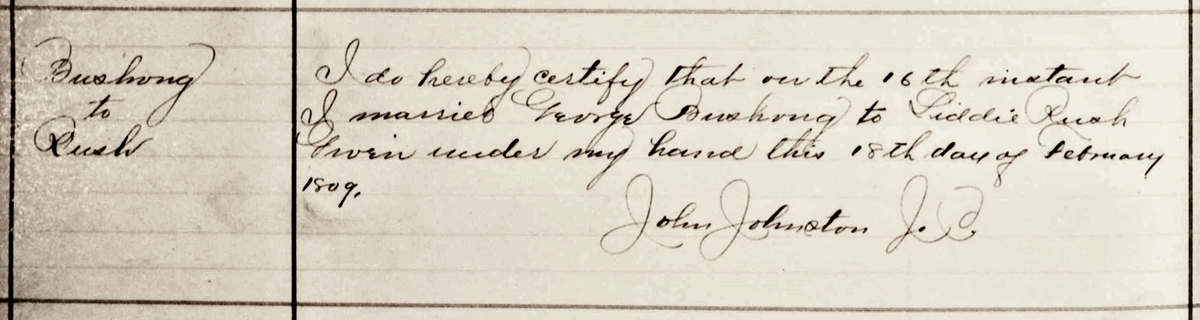 Bushong
to
Rush
I do hereby certify that on the 16th instant
I married George Bushong to Siddie Rush
Given under my hand this 18th day of February
1809.
John Johnston J. P.